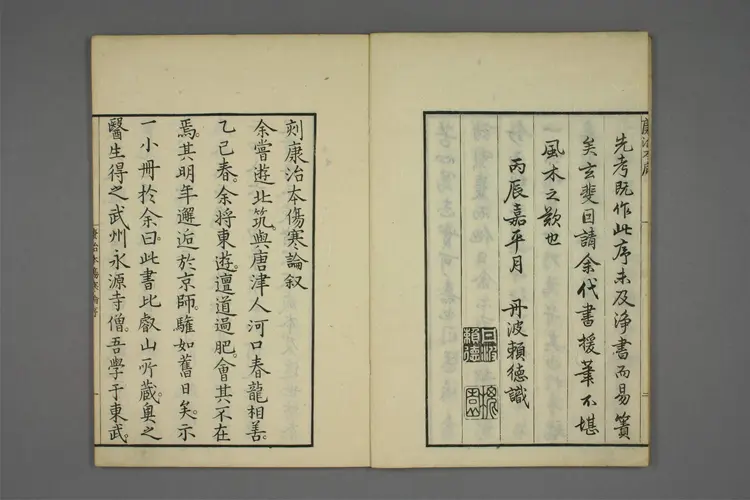 先考既作此序未及淨書而易簀
矣玄斐因請余代書援筆不堪
風木之歎也
丙辰嘉平月 丹波賴德識
刻康治本傷寒論叙
余嘗遊北筑。與唐津人河口春龍相善。
乙巳春。余將東遊。亶道過肥。會其不在
焉。其明年邂逅於京師。驩如舊日矣。示
一小冊於余。曰。此書比叡山所藏。奥之
醫生得之武州永源寺僧。吾學于東武。